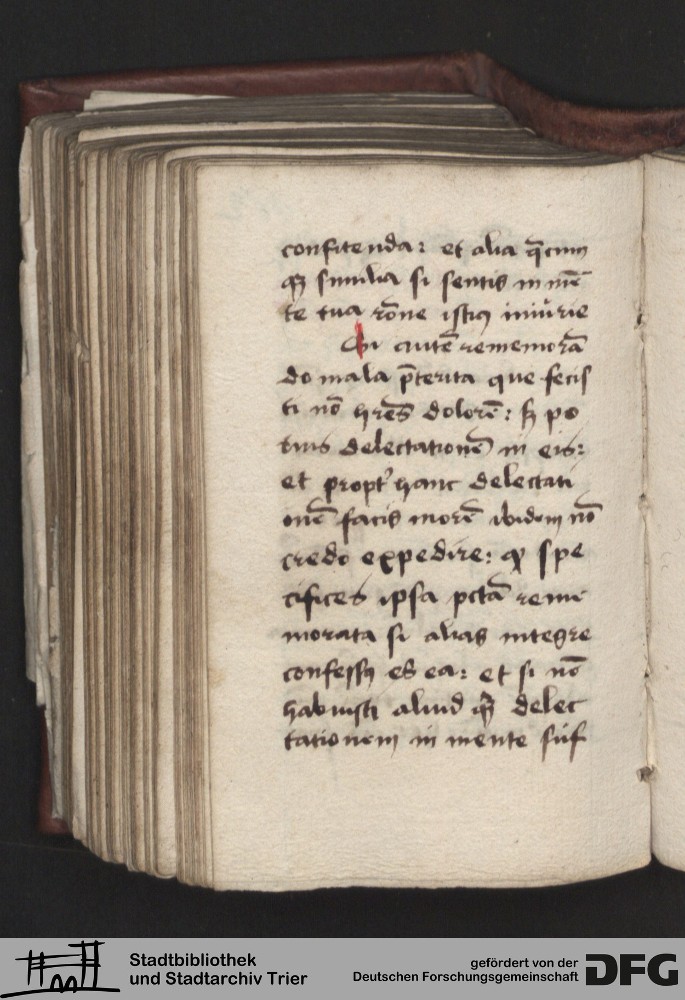 confitenda: et alia q̄cun
qȝ similia si sentis in mē
te tua rōne istiꝰ iniūrie
Si autē rememorā
do mala p̄terita que fecis
ti nō hr̄es dolorē: sȝ po
tius delectationē in eis:
et propt' hanc delectati
onē facis morā ibidem nō
credo expedire: ꝙ spe
cifices ipsa pctā reme
morata si alias integre
confessꝰ es ea: et si nō
habuisti aliud qȝ delec
tationem in mente suf
Stadtbibliothek
und Stadtarchiv Trier
gefördert von der
Deutschen Forschungsgemeinschaft
DFG